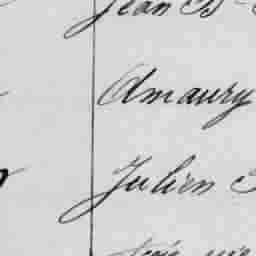 Jean B
Amaury
Julien